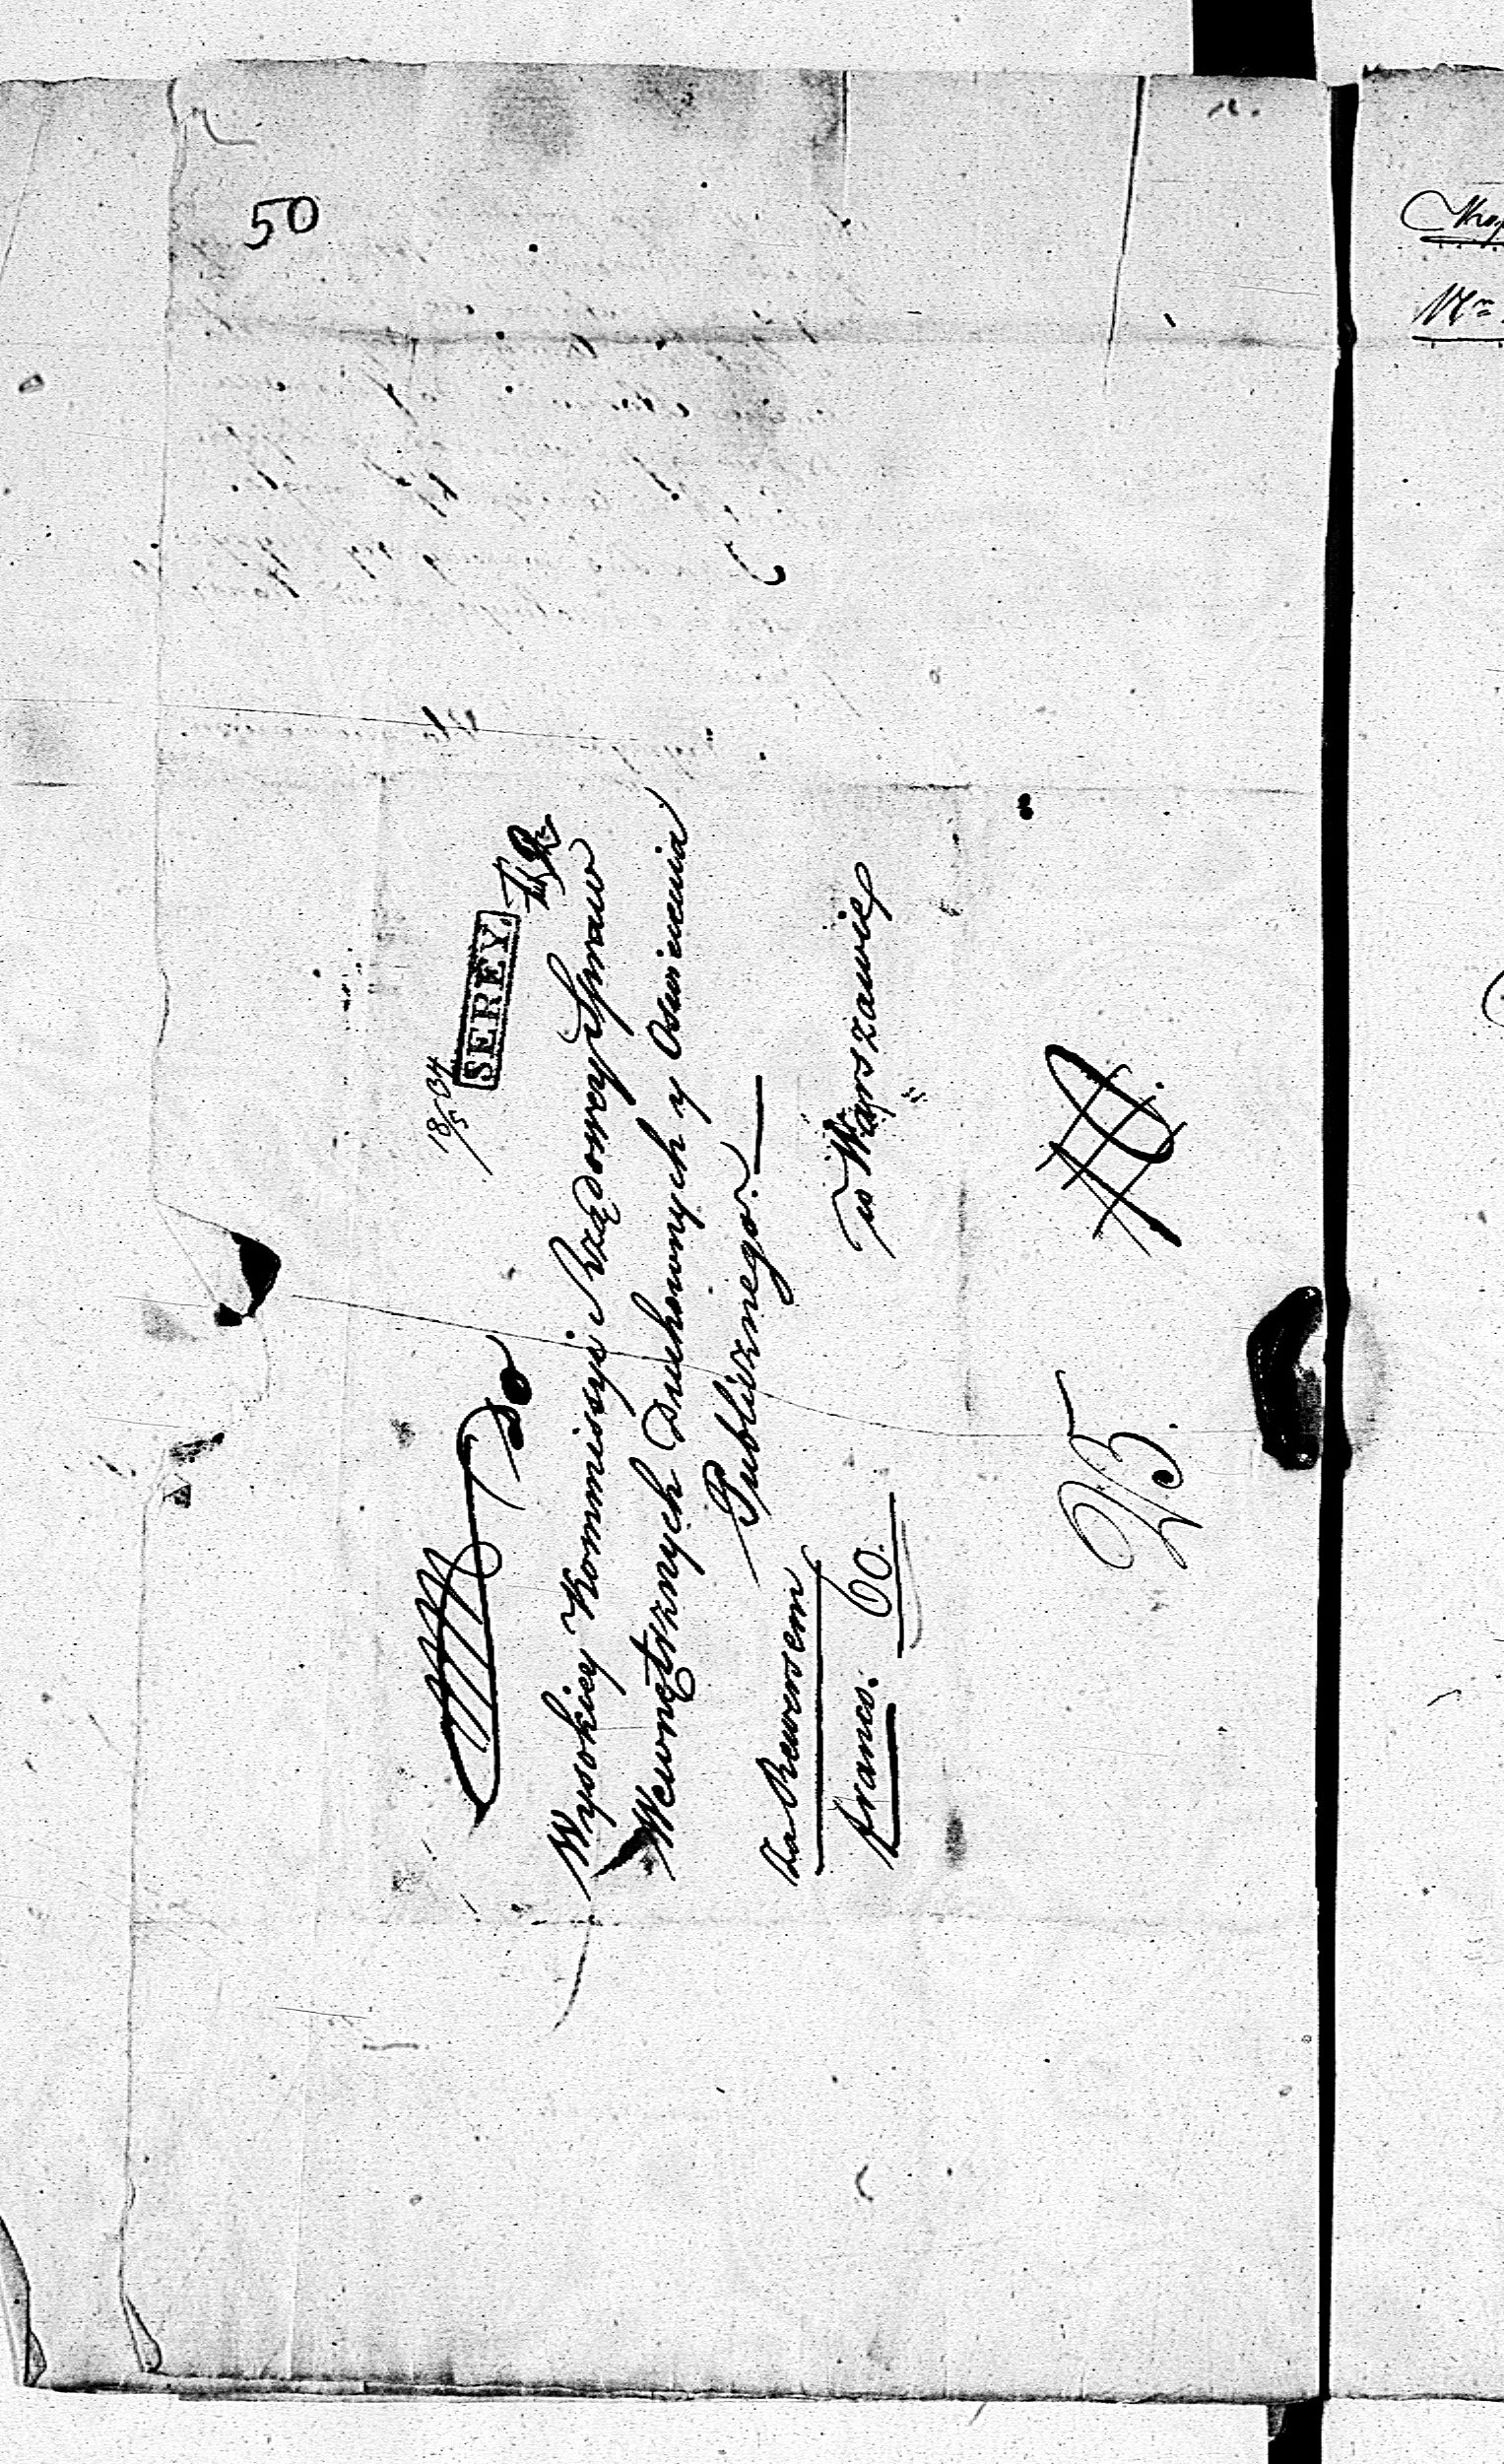 50
18/5 34
SEREY.
Do
Wysokiey Kommissyi Rządowey Spraw
Wewnętrznych Duchownych y Oswiecenia
Publicznego.
w Warszawie
za Rewersem
franco. 60.
23.